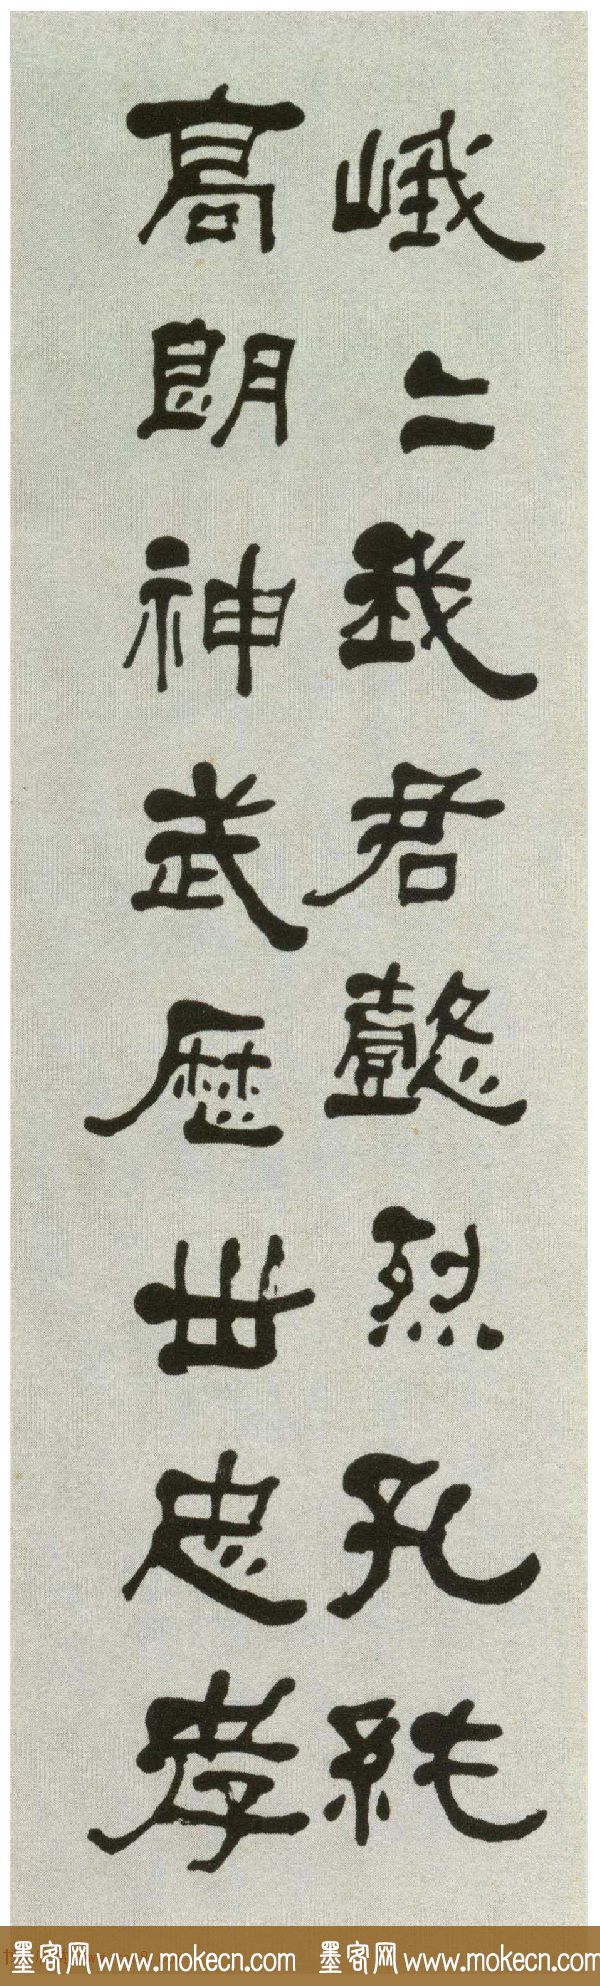 峨〻我君懿烈孔純
高朗神武歷世忠孝
墨客网 www.mokecn.com 墨客网 www.mokecn.com